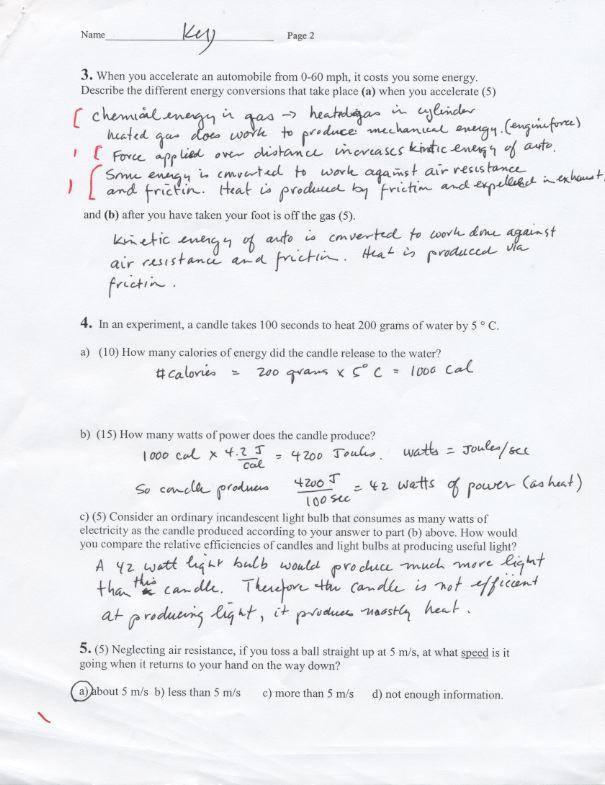 Name Key Page 2
3. When you accelerate an automobile from 0-60 mph, it costs you some energy.
Describe the different energy conversions that take place (a) when you accelerate (5)
chemical energy in gas → heated gas in cylinder
heated gas does work to produce mechanical energy. (engine force)
1 Force applied over distance increases kinetic energy of auto.
1 Some energy is converted to work against air resistance
and friction. Heat is produced by friction and expelled in exhaust.
and (b) after you have taken your foot is off the gas (5).
Kinetic energy of auto is converted to work done against
air resistance and friction. Heat is produced via
friction.
4. In an experiment, a candle takes 100 seconds to heat 200 grams of water by 5 ° C.
a) (10) How many calories of energy did the candle release to the water?
# calories = 200 grams x 5° C = 1000 cal
b) (15) How many watts of power does the candle produce?
1000 cal x 4.2 J/cal = 4200 Joules. watts = Joules/sec
So candle produces 4200 J/100 sec = 42 watts of power (as heat)
c) (5) Consider an ordinary incandescent light bulb that consumes as many watts of
electricity as the candle produced according to your answer to part (b) above. How would
you compare the relative efficiencies of candles and light bulbs at producing useful light?
A 42 watt light bulb would produce much more light
than this candle. Therefore the candle is not efficient
at producing light, it produces mostly heat.
5. (5) Neglecting air resistance, if you toss a ball straight up at 5 m/s, at what speed is it
going when it returns to your hand on the way down?
a) about 5 m/s b) less than 5 m/s c) more than 5 m/s d) not enough information.